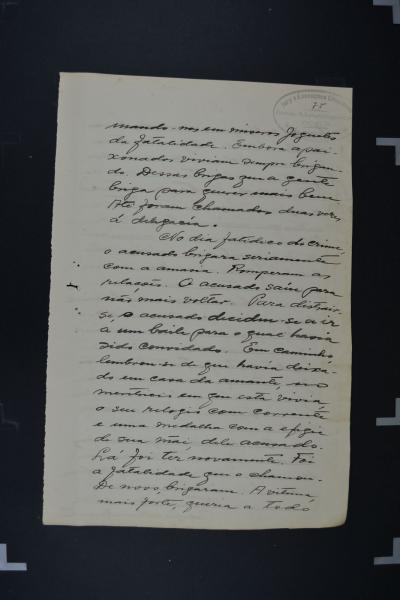 75
mando-nos em miseros joguetes
da fatalidade. Embora apai-
xonados viviam sempre brigan-
do. Dessas brigas que a gente
briga para querer mais bem.
Até foram chamados duas vezes
á delegacia.
No dia fatidico do crime,
o acusado brigara seriamente
com a amasia. Romperam as
relações. O acusado saiu para
não mais voltar. Para distrair-
se, o acusado decidiu-se a ir
a um baile para o qual havia
sido convidado. Em caminho
lembrou-se de que havia deixa-
do em casa da amante, no
em que esta vivia
o seu relogio com corrente
e uma medalha com a efigie
de sua mãi, dele acusado.
Lá foi ter novamente. Foi
a fatalidade que o chamou.
De novo, brigaram. A vitima,
mais forte, queria a todo